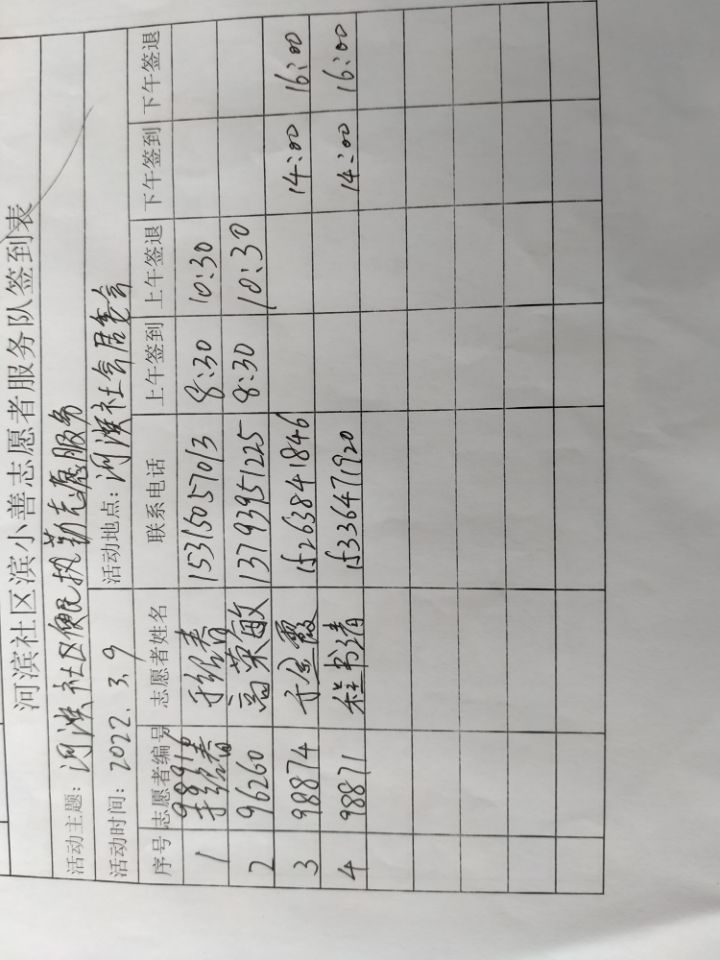 河滨社区滨小善志愿者服务队签到表
活动主题: 河滨社区便民执勤志愿服务
活动时间: 2022.3.9 活动地点: 河滨社区居委会
序号 志愿者编号 志愿者姓名 联系电话 上午签到 上午签退 下午签到 下午签退
1 于绍春 15315057013 8:30 10:30
2 96260 高英敏 13793951225 8:30 10:30
3 98874 于金霞 15263841846 14:00 16:00
4 98871 程书靖 15336471920 14:00 16:00